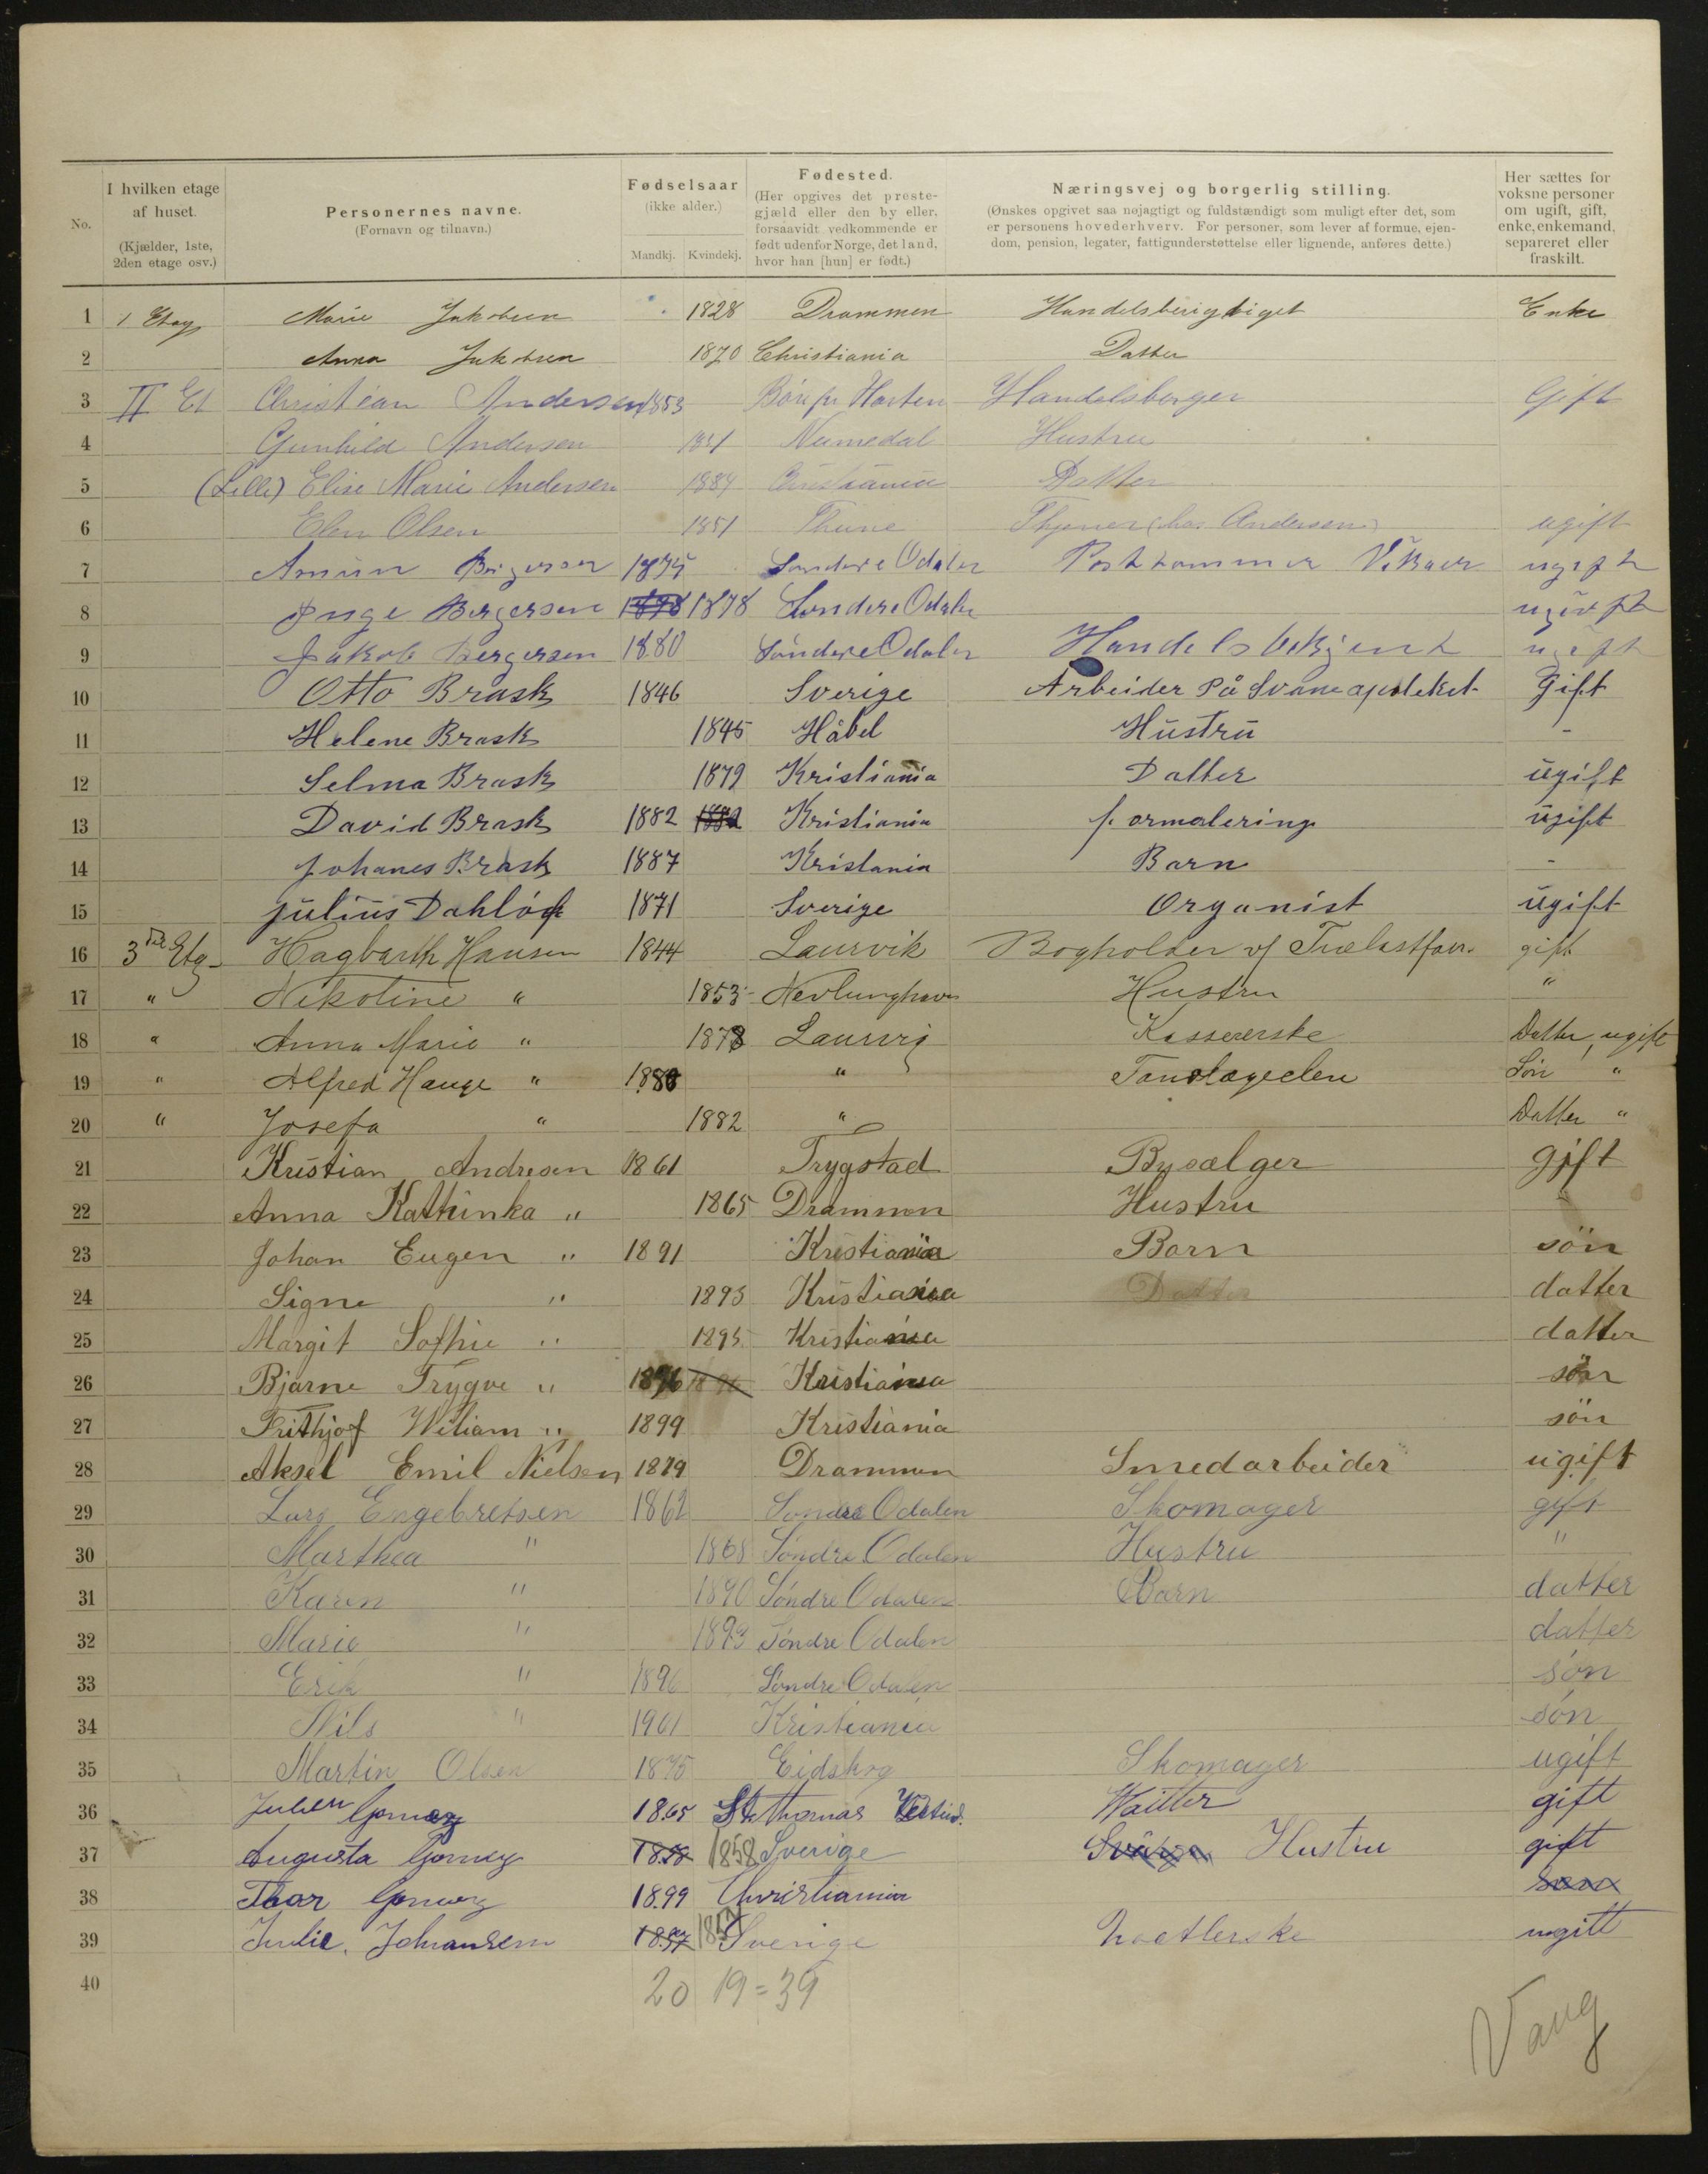 No. I hvilken etage af huset. (Kjælder, 1ste, 2den etage osv.) Personernes navne. (Fornavn og tilnavn.) Fødselsaar (ikke alder.) Mandkj. Kvindekj. Fødested. (Her opgives det prestegjæld eller den by eller, forsaavidt vedkommende er født udenfor Norge, det land, hvor han [hun] er født.) Næringsvej og borgerlig stilling. (Ønskes opgivet saa nøjagtigt og fuldstændigt som muligt efter det, som er personens hovederhverv. For personer, som lever af formue, ejendom, pension, legater, fattigunderstøttelse eller lignende, anføres dette.) Her sættes for voksne personer om ugift, gift, enke, enkemand, separeret eller fraskilt.
1 1 Etag Marie Jakobsen 1828 Drammen Handelsberigtiget Enke
2 Anna Jakobsen 1870 Christiania Datter
3 II Et Christian Andersen 1853 Handelsborger Gift
4 Gunhild Andersen 1851 Numedal Hustru
5 (Lilli) Elise Marie Andersen 1884 Christiania Datter
6 Elen Olsen 1851 Thune Thjener (hos Andersen) ugift
7 Amun Bergersen 1874 Sondere Odalen ugift
8 Inge Bergersen 1878 1878 Sondere Odalen ugivft
9 Jakob Bergersen 1880 Søndere Odalen Handelsbetjent ugift
10 Otto Brask 1846 Sverige Arbeider På Svaneapoteket Gift
11 Helene Brask 1845 Håbel Hustru -
12 Selma Brask 1879 Kristiania Datter ugift
13 David Brask 1882 1882 Kristiania formalering ugift
14 Johanes Brask 1887 Kristania Barn -
15 Julius Dahlöf 1871 Sverige Organist ugift
16 3die Etg- Hagbarth Hansen 1844 Laurvik Bogholder v/ Trælastforr. gift
17 " Nikoline " 1853 Nevlunghavn Hustru "
18 " Anna Marie " 1878 Laurvig Kassererske Datter, ugift
19 " Alfred Hauge " 1880 " Tandlægeelev Søn "
20 " Josefa " 1882 " Datter "
21 Kristian Andresen 1861 Trygstad Bysælger gift
22 Anna Kathinka " 1865 Drammen Hustru
23 Johan Eugen " 1891 Kristiania Barn søn
24 Signe " 1893 Kristiania Datter datter
25 Margit Sofhie " 1895 Kristiania datter
26 Bjarne Trygve " 1896 1896 Kristiania søn
27 Frithjof Wiliam " 1899 Kristiania søn
28 Aksel Emil Nielsen 1879 Drammen Smedarbeider ugift
29 Lars Engebretsen 1862 Søndre Odalen Skomager gift
30 Marthea " 1868 Søndre Odalen Hustru "
31 Karen " 1890 Søndre Odalen Barn datter
32 Marie " 1893 Søndre Odalen datter
33 Erik " 1896 Søndre Odalen søn
34 Nils " 1901 Kristiania søn
35 Martin Olsen 1875 Eidskog Skomager ugift
36 Julien Gomez 1865 St Thomas Vestind. Waitter gift
37 Augusta Gomez 1858 1858 Sverige Hustru gift
38 Thor Gomez 1899 Christiania søn
39 Julie. Johansen 1857 1857 Sverige ugift
40 20 19 = 39
Vang